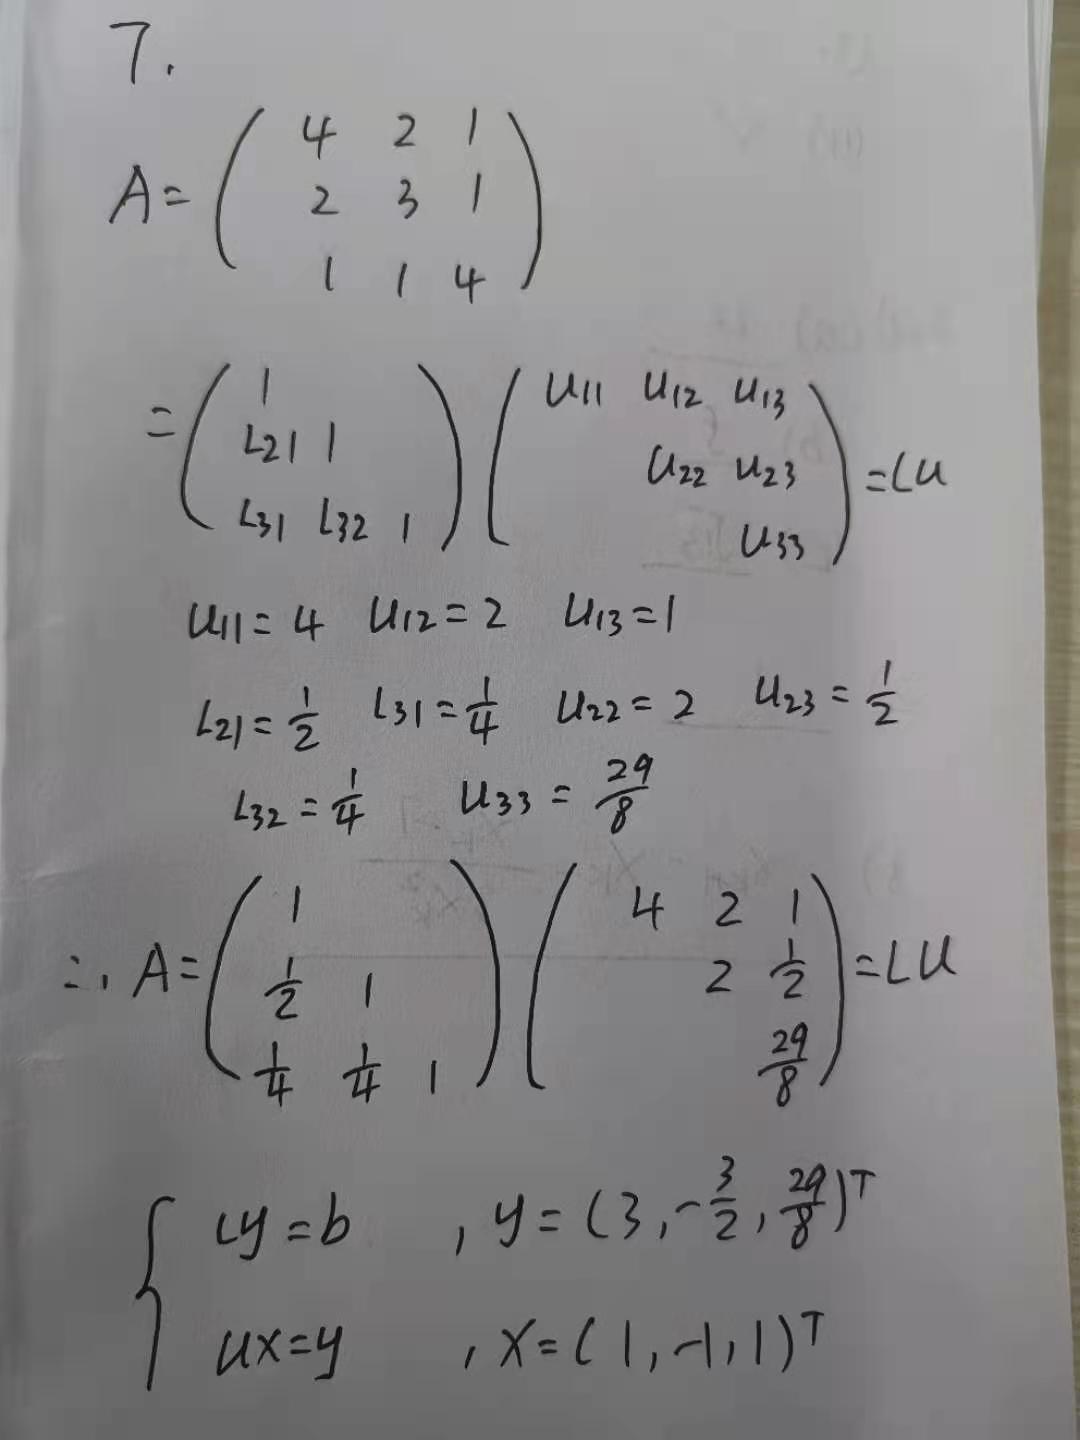 7.
A = ( 4 2 1
2 3 1
1 1 4 )
= ( 1
L21 1
L31 L32 1 ) ( U11 U12 U13
U22 U23
U33 ) = LU
U11 = 4 U12 = 2 U13 = 1
L21 = 1/2 L31 = 1/4 U22 = 2 U23 = 1/2
L32 = 1/4 U33 = 29/8
∴ A = ( 1
1/2 1
1/4 1/4 1 ) ( 4 2 1
2 1/2
29/8 ) = LU
{ Ly = b , y = (3, -3/2, 29/8)ᵀ
Ux = y , x = (1, -1, 1)ᵀ